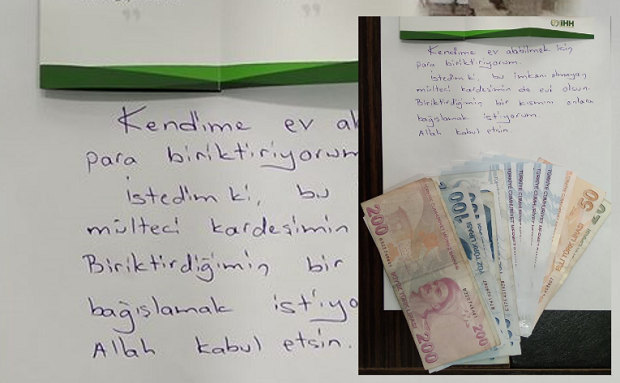 Kendime ev al
para biriktiriyorum
İstedim ki, bu
mülteci kardeşimin
Biriktirdiğimin bir
bağışlamak istiyo
Allah kabul etsin.
İHH
Kendime ev alabilmek için
para biriktiriyorum.
İstedim ki, bu imkanı olmayan
mülteci kardeşimin de evi olsun.
Biriktirdiğimin bir kısmını onlara
bağışlamak istiyorum.
Allah kabul etsin.
200
100
50
200
200